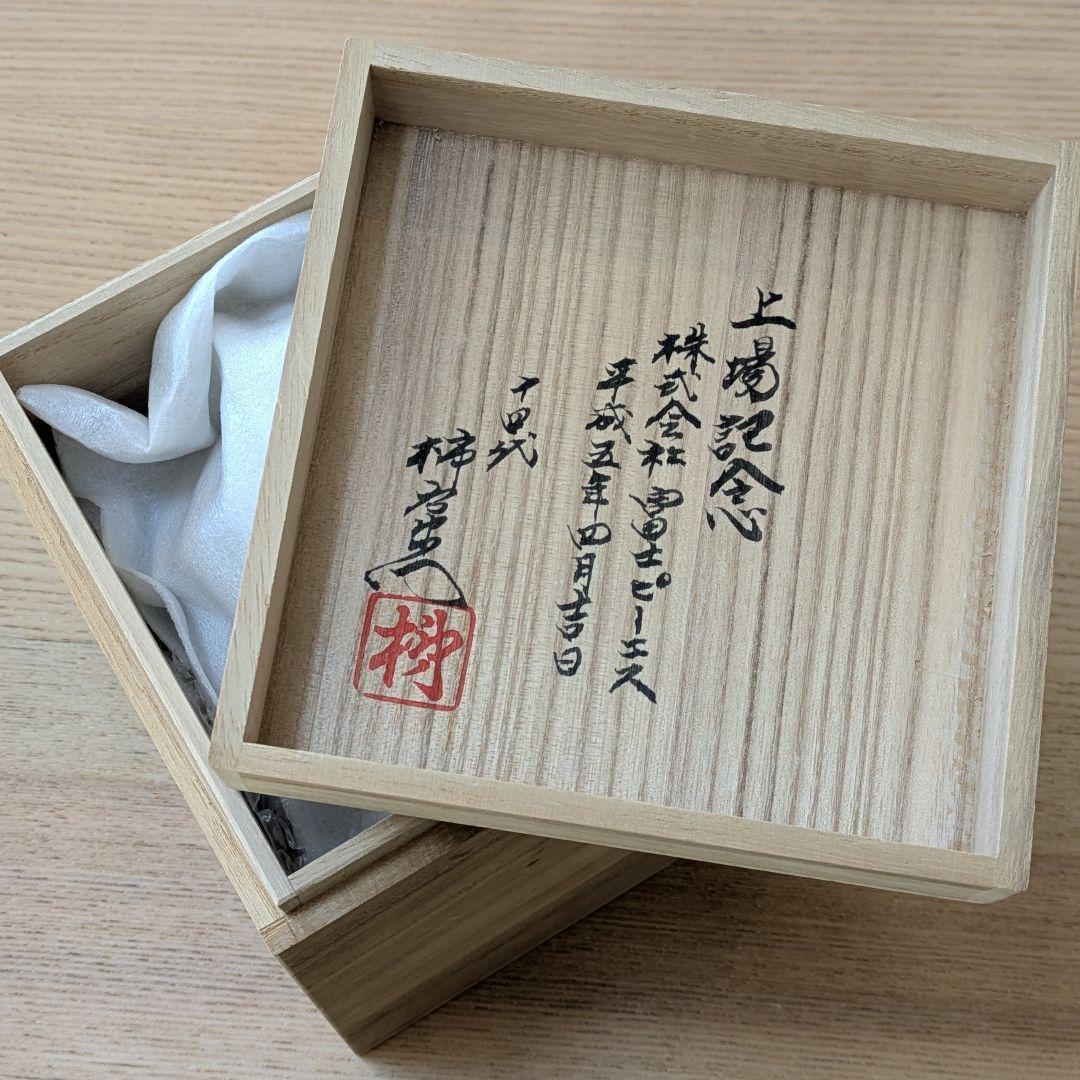 上場記念
株式会社 富士ピーエス
平成五年四月吉日
十四代
柿右衛門